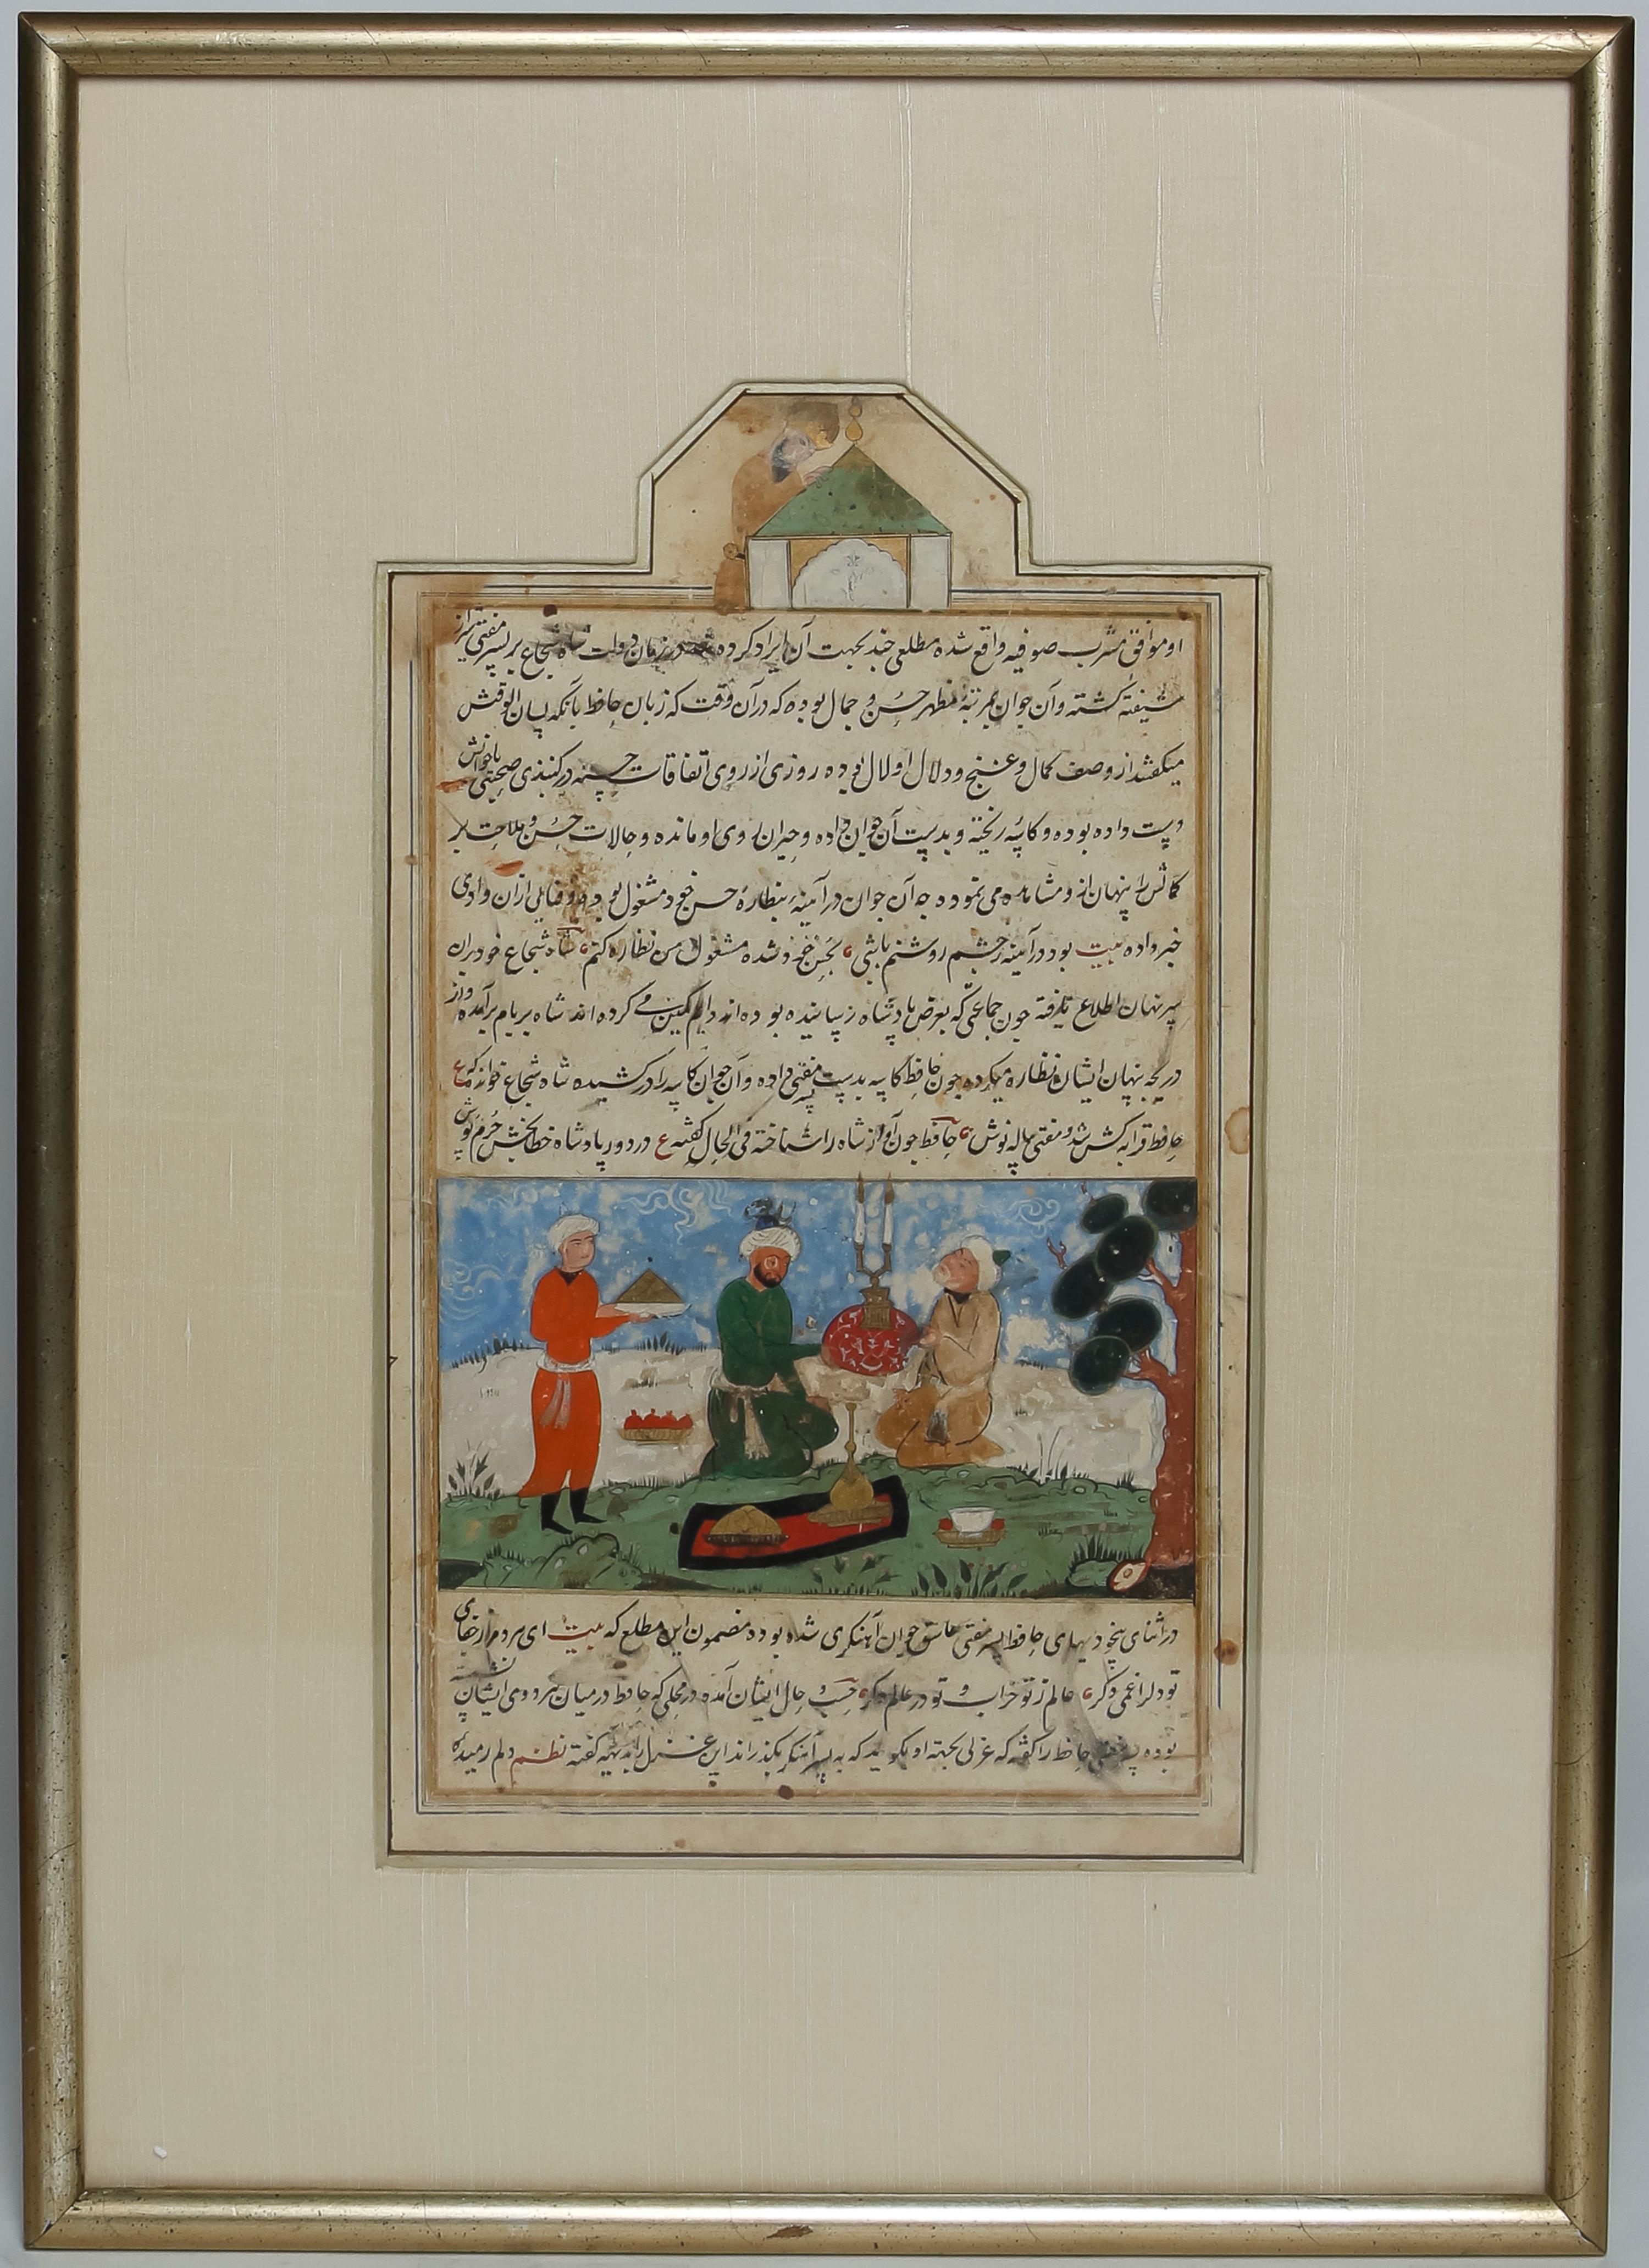 او موافق مشرب صوفیه واقع شده مطلعی چند بجهت آن ایراد کرده در زمان دولت شاه شجاع بر پسر مفتی شیراز
شیفته کشته و آن جوان بمرتبهٔ مظهر حسن و جمال بوده که در آن وقت که زبان حافظ بآنکه لسان الوقتش
میکفتند از وصف کمال و غنج و دلال او لال بوده روزی از روی اتفاقات حسنه در کنبذی صحبتی باجوانش
دست داده بوده و کاسه ریخته و بدست آن جوان داده و حیران روی او مانده و حالات حسن و ملاحت بر
کمالش را پنهان از و مشاهده می نموده چه آن جوان در آینه بنظارهٔ حسن خود مشغول بوده از آن وادی
خبر داده بیت بود در آینه چشم روشنم باشی بحسن خود شده مشغول من نظاره کنم شاه شجاع خود بران
سر نهان اطلاع یافته چون جماعتی که بعرض پادشاه رسانیده بوده اند دایم کمین می کرده اند شاه بر بام برآمده و از
دریچه پنهان ایشان نظاره میکرده چون حافظ کاسه بدست مفتی داده و آن جوان کاسه را در کشیده شاه شجاع خوانده که ع
حافظ قرابه کش شد و مفتی پیاله نوش حافظ چون آواز شاه را شناخته فی الحال کفته ع در دور پادشاه خطابخش جرم پوش
در اثنای بیخودیهای حافظ پسر مفتی عاشق جوان آهنکری شده بوده مضمون این مطلع که بیت ای هر دم از جفای
تو دلرا غمی دکر عالم ز تو خراب و تو در عالم دکر حسب و حال ایشان آمده در محلی که حافظ در میان هر دوی ایشان نشسته
بوده پسر مفتی حافظ را کفته که غزلی بجهة او بکوید که به پسر آهنکر بکذراند این غزل را بدیهه کفته نظم دلم رمیده